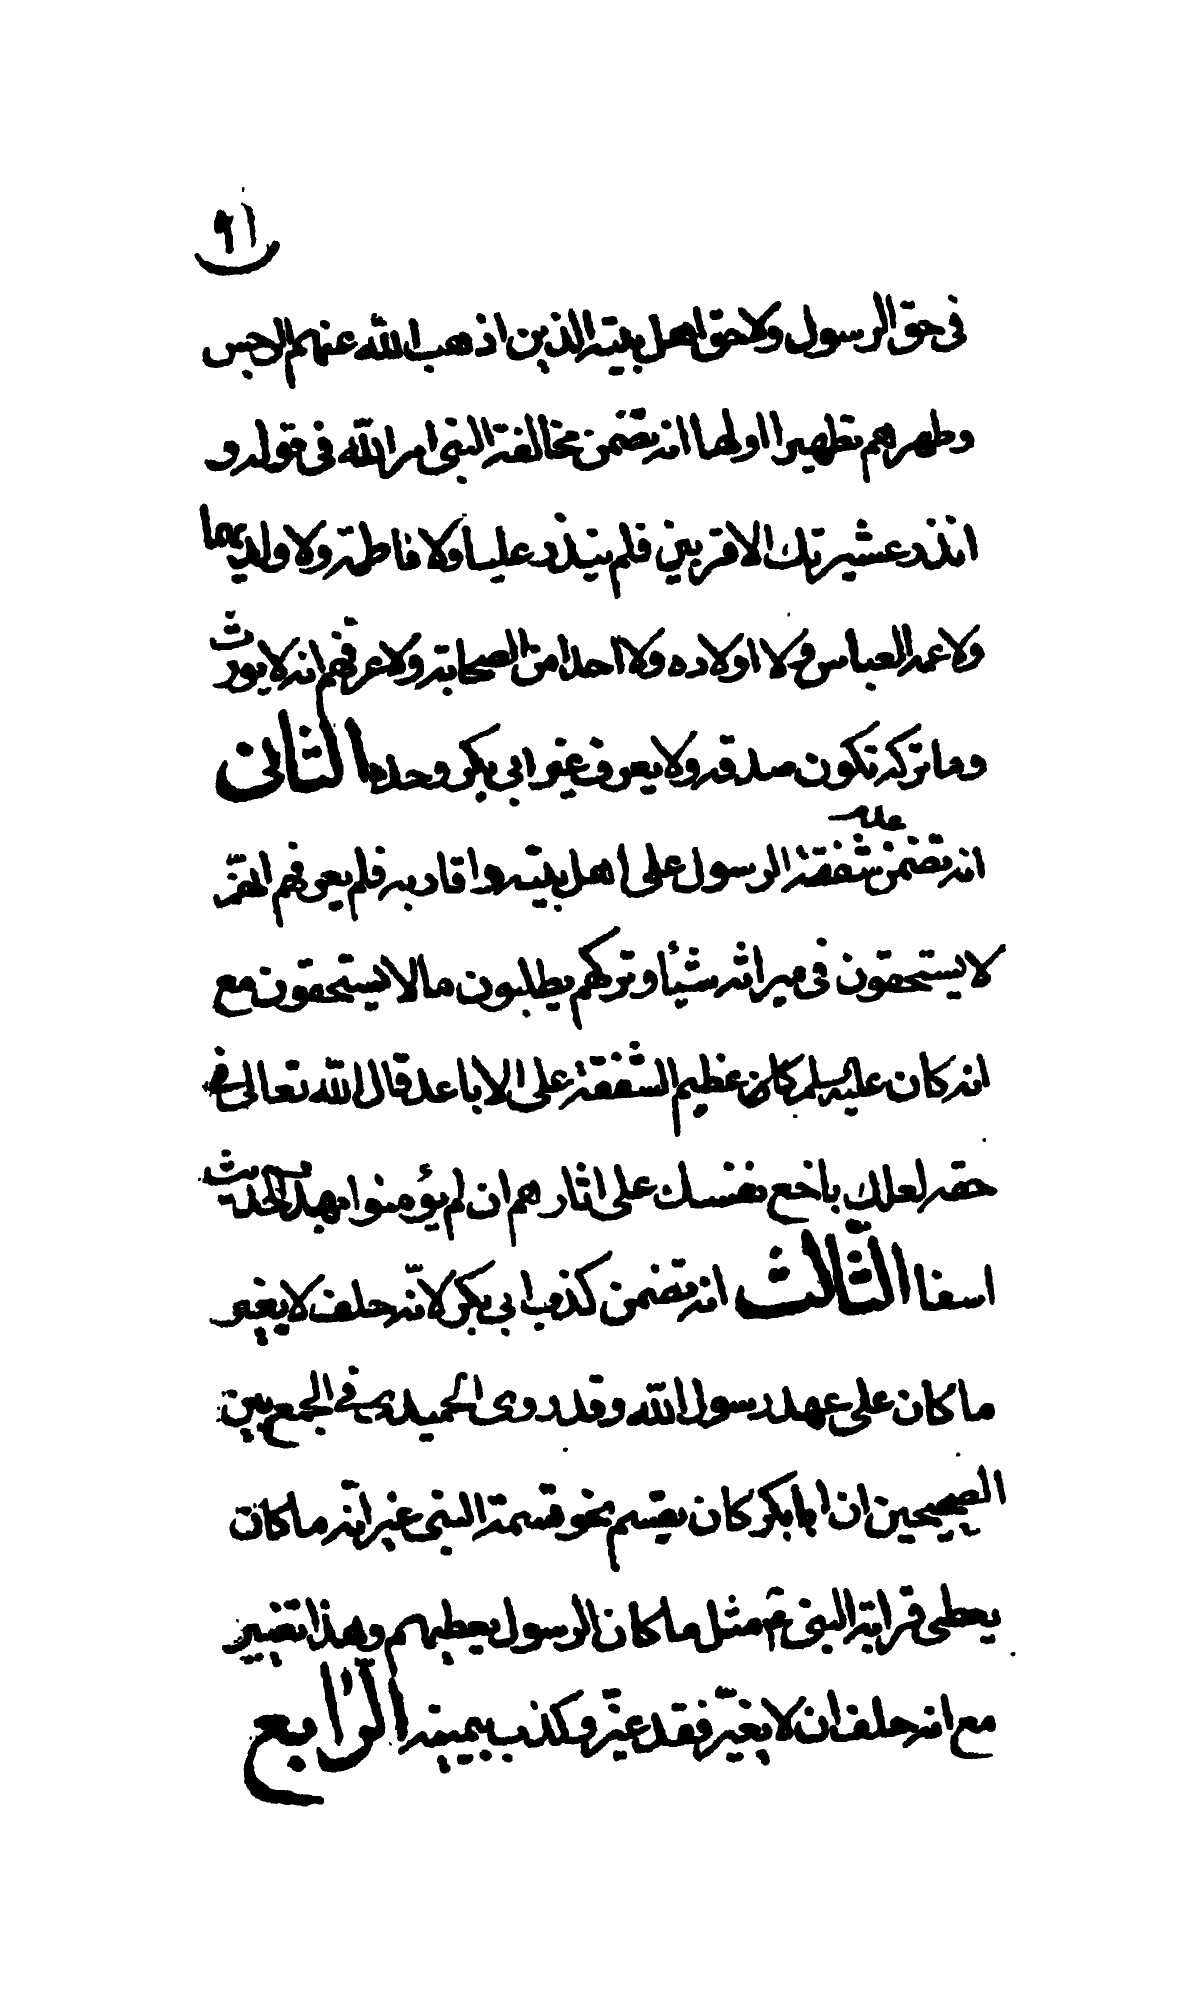 ٩١
فى حق الرسول ولا حق اهل بيته الذين اذهب الله عنهم الرجس
وطهرهم تطهيرا اولها انه يتضمن مخالفة النبى امر الله فى قوله و
انذر عشيرتك الاقربين فلم ينذر عليا ولا فاطمة ولا ولديهما
ولا عمه العباس ولا اولاده ولا احدا من الصحابة ولا عرفهم انه لا يورث
وما تركه تكون صدقه ولا يعرف غير ابى بكر وحده الثانى
انه تضمن شفقة الرسول على اهل بيته واقاربه فلم يعرفهم انهم
عليه
لا يستحقون فى ميراثه شيئا وتركهم يطلبون مالا يستحقون مع
انه كان عليه سلم كان عظيم الشفقة على الاباعد قال الله تعالى فى
حقه لعلك باخع نفسك على اثارهم ان لم يؤمنوا بهذا الحديث
اسفا الثالث انه تضمن كذب ابى بكر لانه حلف لا يغير
ما كان على عهد رسول الله وقد روى الحميدى فى الجمع بين
الصحيحين ان ابا بكر كان يقسم نحو قسمة النبى غير انه ما كان
يعطى قرابة النبى ع مثل ما كان الرسول يعطيهم وهذا تغيير
مع انه حلف ان لا يغير فقد غير وكذب بيمينه الرابع